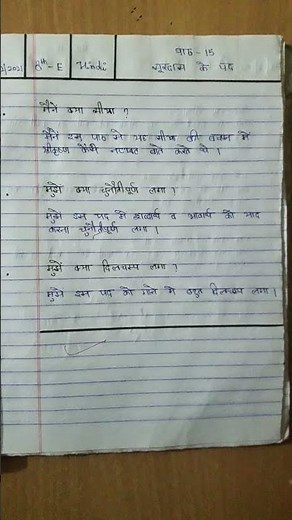 /2021 8th - E Hindi पाठ - 15
सूरदास के पद
मैंने क्या सीखा ?
मैंने इस पाठ से यह सीखा की बचपन में
श्रीकृष्ण कैसी नटखट बातें करते थे ।
मुझे क्या चुनौतीपूर्ण लगा ।
मुझे इस पद में शब्दार्थ व भावार्थ को याद
करना चुनौतीपूर्ण लगा ।
मुझे क्या दिलचस्प लगा ?
मुझे इस पद को गाने में बहुत दिलचस्प लगा ।